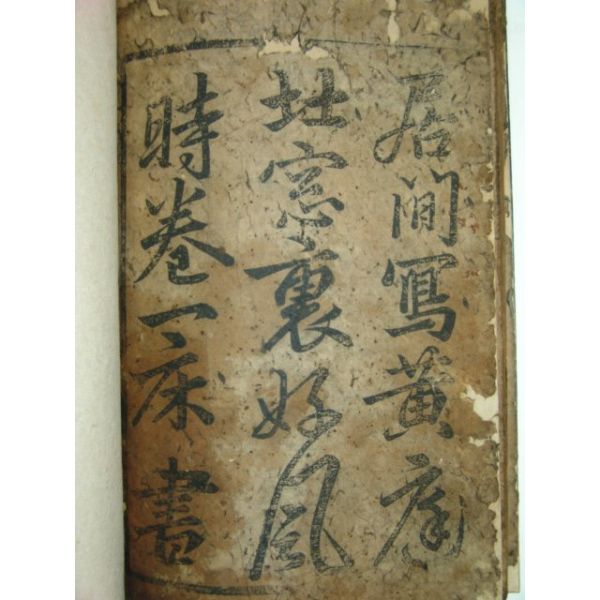 居間寫黄庭
北窓裏好風
時卷一床書